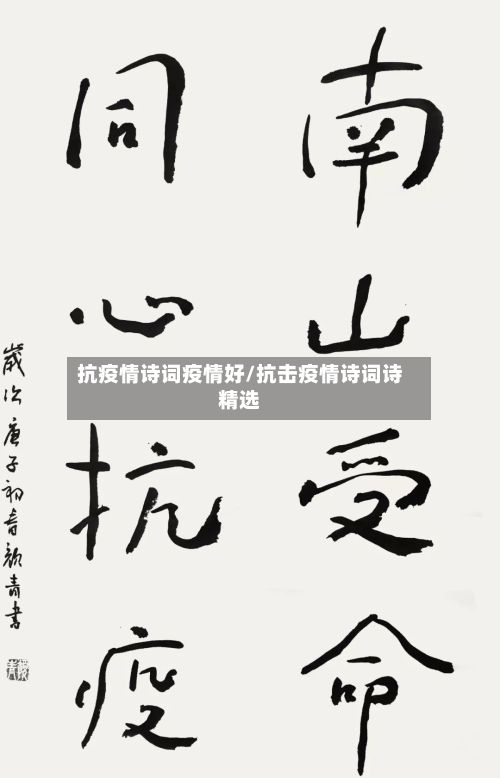 南山受命
同心抗疫
歲次庚子初春颜青書
抗疫情诗词疫情好/抗击疫情诗词诗
精选